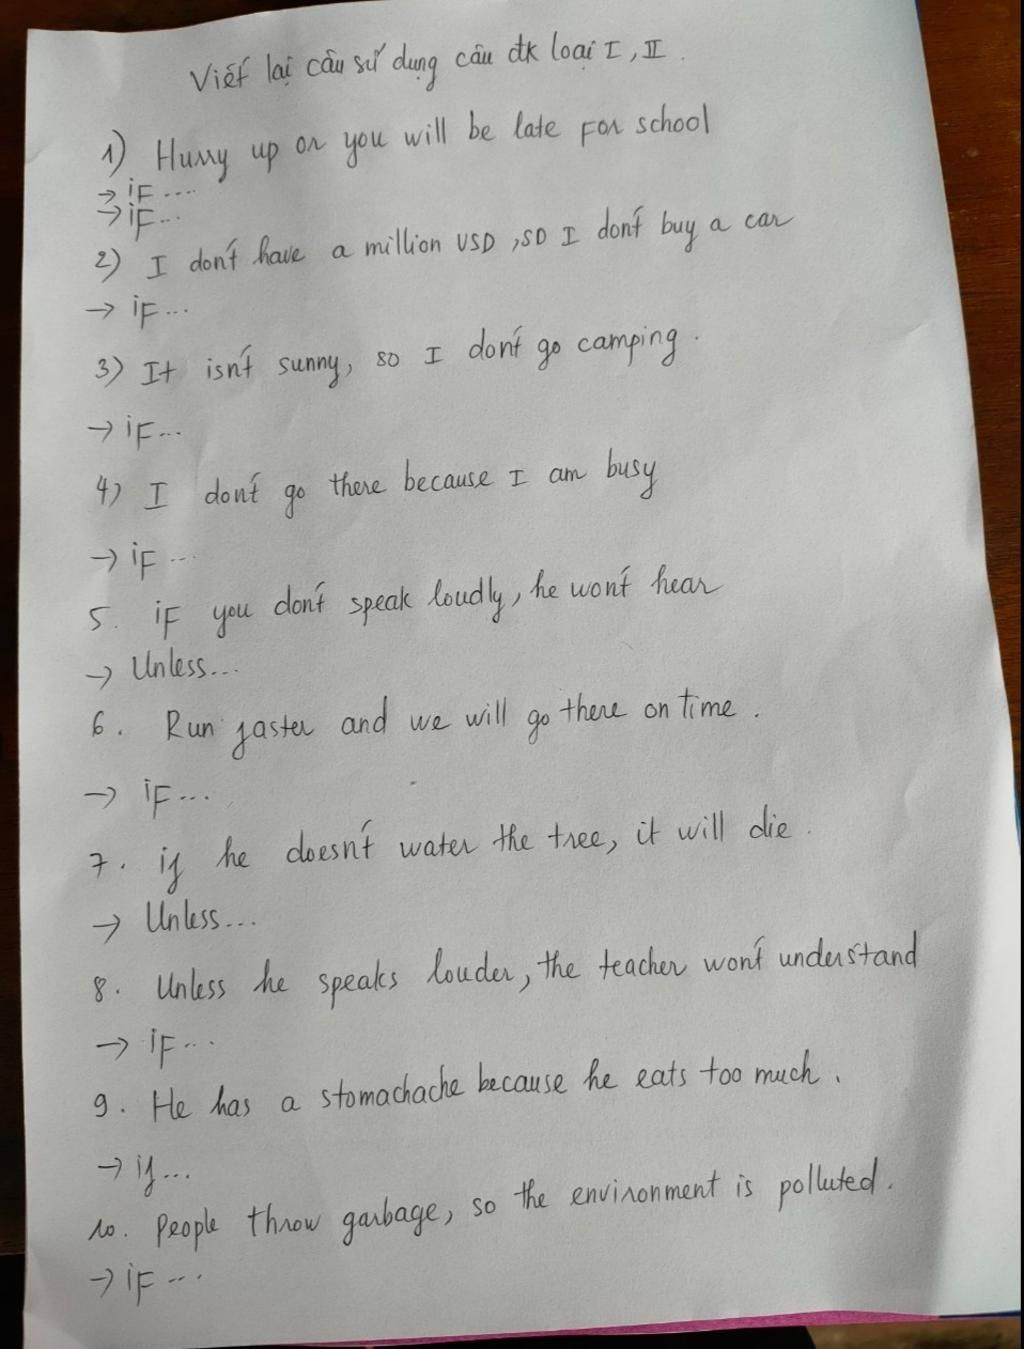 Viết lại câu sử dụng câu đk loại I, II.
1) Hurry up or you will be late For school
→ iF ....
→ iF...
2) I don't have a million USD, so I don't buy a car
→ iF...
3) It isn't sunny, so I don't go camping.
→ iF...
4) I don't go there because I am busy
→ iF ...
5. iF you don't speak loudly, he won't hear
→ Unless...
6. Run faster and we will go there on time.
→ iF...
7. if he doesn't water the tree, it will die.
→ Unless...
8. Unless he speaks louder, the teacher won't understand
→ iF...
9. He has a stomachache because he eats too much.
→ if...
10. People throw garbage, so the environment is polluted.
→ iF ...